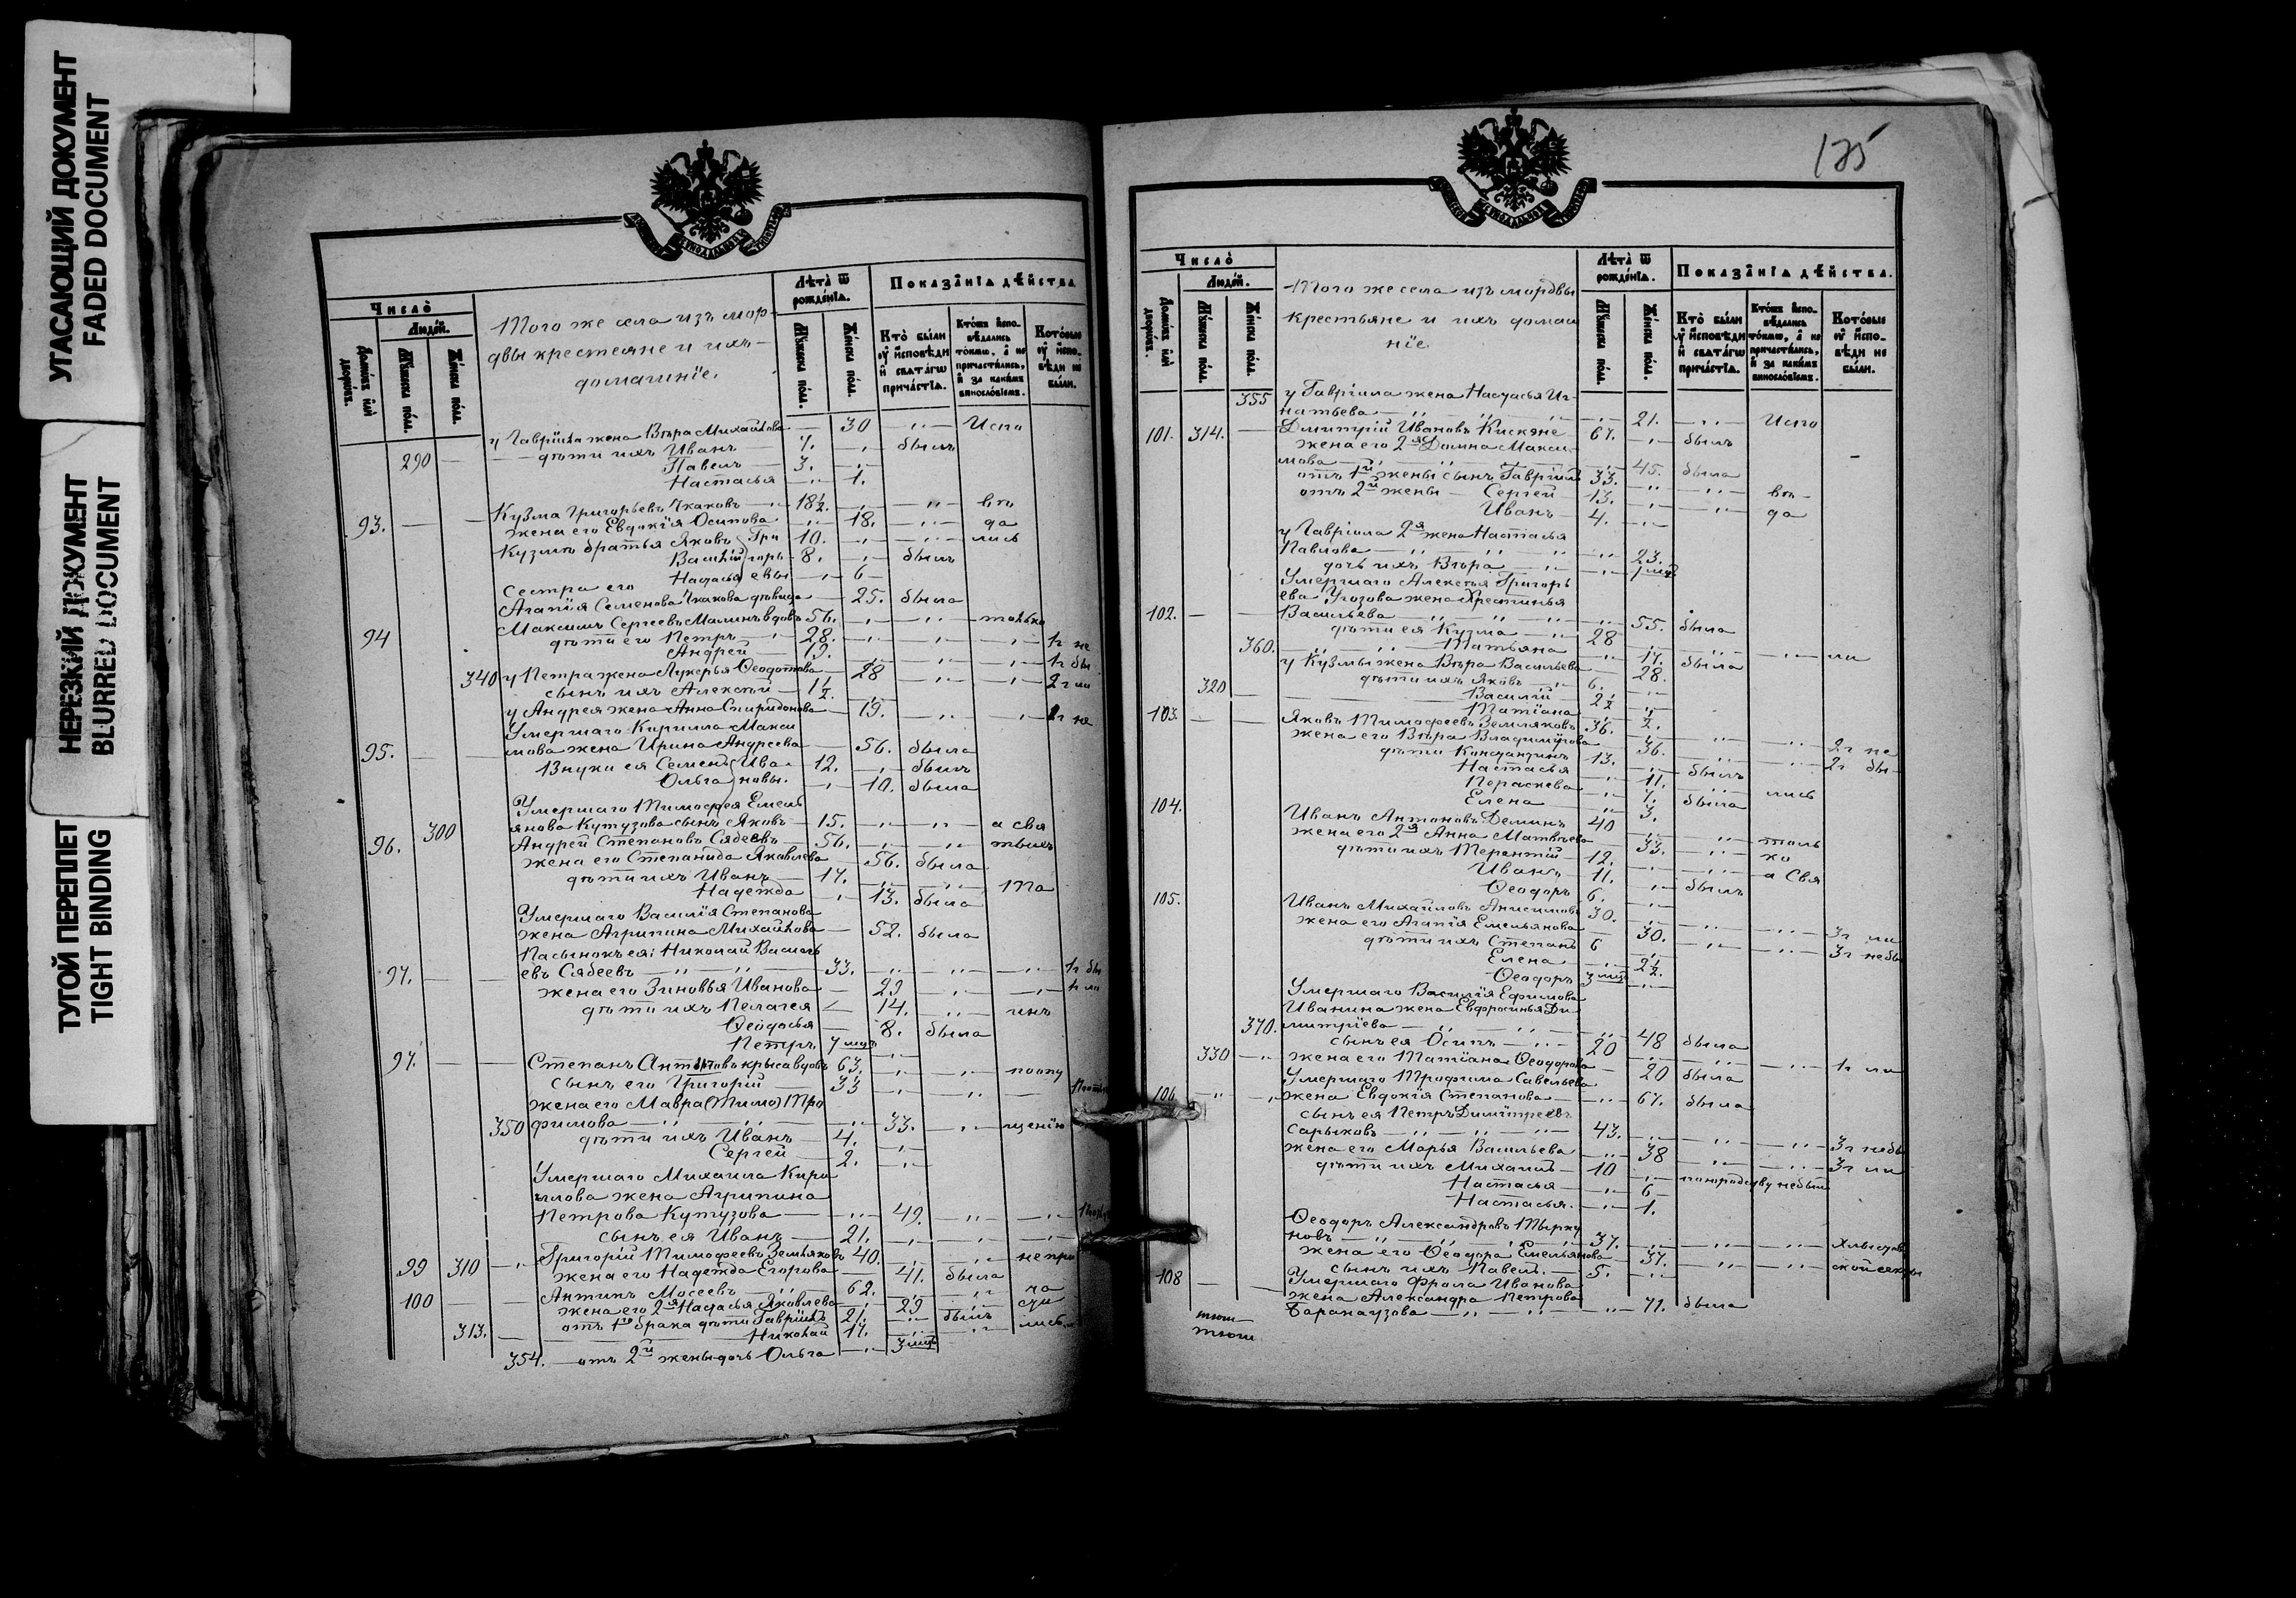 УГАСАЮЩИЙ ДОКУМЕНТ
FADED DOCUMENT
НЕРЕЗКИЙ ДОКУМЕНТ
BLURRED DOCUMENT
ТУГОЙ ПЕРЕПЛЕТ
TIGHT BINDING
Число̀
Людей.
Домовъ или дворовъ.
Мужска полу.
Женска полу.
Того же села изъ мор-
двы крестеяне и ихъ
домашніе.
Лѣта̀ ѿ рожденїѧ.
Мужска полу.
Женска полу.
Показанїѧ дѣйства
Кто̀ были оу исповѣди и свѧтагѡ причастїѧ.
Ктоже исповѣдались токмѡ, а не причастились, и за какимъ винословїемъ.
Которые оу исповѣди не были.
у Гавріила жена Вѣра Михайлова — 30 Испо
290 — дѣти ихъ Иванъ 7. былъ
Павелъ 3.
Настасья 1.
93. Кузма Григорьевъ Чкаковъ 18½. вѣ
жена его Евдокія Осипова 18. да
Кузмы братья Яковъ Гри 10. лись
Василій горь 8. былъ
сестра его Настасья евы 6
Агапія Семенова Чкакова дѣвица 25. была
94 Максимъ Сергеевъ Малинъ вдовъ 56. только
дѣти его Петръ 28. 1г не
Андрей 19. 1г бы
340 у Петра жена Лукерья Ѳеодотова 28 2г ли
сынъ ихъ Алексѣй 1½.
у Андрея жена Анна Спиридонова 19. 1г не
Умершаго Кирилла Макси
95. мова жена Ирина Андреева 56. была
Внуки ея Семенъ Ива 12. былъ
Ольга новы. 10. была
Умершаго Тимофея Емель
300 янова Кутузова сынъ Яковъ 15. а свя
96. Андрей Степановъ Сябеевъ 56. тыхъ
жена его Степанида Яковлева 56. была
дѣти ихъ Иванъ 17. Та
Надежда 13. была
Умершаго Василія Степанова
жена Агрипина Михайлова 52. была
Пасынокъ ея: Николай Василь
97. евъ Сябеевъ 33. 1г бы
жена его Зиновья Иванова 29 1г ли
дѣти ихъ Пелагея 14. инъ
Ѳеодосья 8. была
Петръ 7 мцъ
97. Степанъ Антиповъ 63. поопу
сынъ его Григорій 33
жена его Мавра (Тимо) Тро
350 фимова 33. щенію
дѣти ихъ Иванъ 4.
Сергей 2.
Умершаго Михаила Кири
ллова жена Агрипина
Петрова Кутузова 49.
сынъ ея Иванъ 21.
99 310 Григорій Тимофеевъ Земляковъ 40. непри
жена его Надежда Егорова 41. была
100 Антипъ Мосеевъ 62. ча
жена его 2я Настасья Яковлева 29 сти
отъ 1го брака дѣти Гавріилъ 21. былъ лись
313. Николай 17.
354. отъ 2й жены дочь Ольга 3 мцъ
125
Число̀
Людей.
Домовъ или дворовъ.
Мужска полу.
Женска полу.
Того же села изъ мордвы
крестьяне и ихъ домаш
ніе.
Лѣта̀ ѿ рожденїѧ.
Мужска полу.
Женска полу.
Показанїѧ дѣйства.
Кто̀ были оу исповѣди и свѧтагѡ причастїѧ.
Ктоже исповѣдались токмѡ, а не причастились, и за какимъ винословїемъ.
Которые оу исповѣди не были.
355 у Гавріила жена Настасья Иг-
натьева 21. Испо
101. 314. Димитрій Ивановъ Кискяне 67. былъ
жена его 2я Домна Макси
мова 45. была
отъ 1й жены сынъ Гавріилъ 33.
отъ 2й жены Сергей 13. вѣ-
Иванъ 4. да
у Гавріила 2я жена Настасья
Павлова 23.
дочь ихъ Вѣра 1 мц.
Умершаго Алексѣя Григорь
ева Угозова жена Христинья
102. Васильева 55. была
дѣти ея Кузма 28
360. Матьяна 17. была ли
у Кузмы жена Вѣра Васильева 28.
дѣти ихъ Яковъ 6.
320 Василій 2½
Татіана ½.
103. Яковъ Тимофеевъ Земляковъ 36. 2г не
жена его Вѣра Владимірова 36. 2г бы
дѣти Констанзинъ 13. былъ
Настасья 11. лись
Параскева 7. была
Елена 3.
104. Иванъ Антоновъ Деминъ 40 толь
жена его 2я Анна Матвѣева 33. ко
дѣти ихъ Терентій 12. а Свя
Иванъ 11. былъ
Ѳеодоръ 6.
105. Иванъ Михайловъ Анисимовъ 30. 3г ли
жена его Агапія Емельянова 30. 3г небы
дѣти ихъ Степанъ 6
Елена 2½.
Ѳеодоръ 3 мцъ
Умершаго Василія Ефимова
Иванина жена Евфросинья Ди-
370. митріева 48 была
сынъ ея Осипъ 20 1г ли
330 жена его Татіана Ѳеодорова 20 была
Умершаго Трофима Савельева
106 жена Евдокія Степанова 67. была
сынъ ея Петръ Димитреевъ
Сарыковъ 43. 3г небы
жена его Марья Васильева 38 3г ли
дѣти ихъ Михаилъ 10
Настасья 6
Настасья. 1.
Ѳеодоръ Александровъ Тырку
новъ 37. Хлыстов
жена его Ѳеодора Емельянова 37. ской секты
сынъ ихъ Павелъ. 5.
108 Умершаго Фрола Иванова
жена Александра Петрова
Баранаузова 71. была